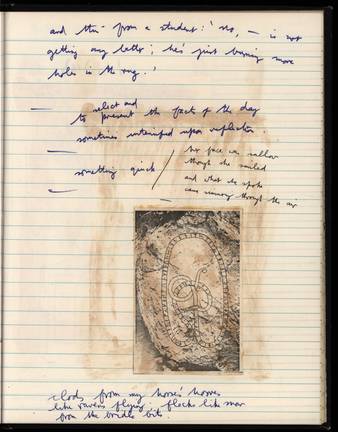 and this from a student: 'No, — is not
getting any better; he's just burning more
holes in the rug.'
select and
to present the facts of the day
sometimes interrupted upon reflection.
something quick /
her face was sallow
though she smiled
and what she spoke
came running through the air
clods from my horse's hooves
like ravens flying, flecks like
from the bridle bits.